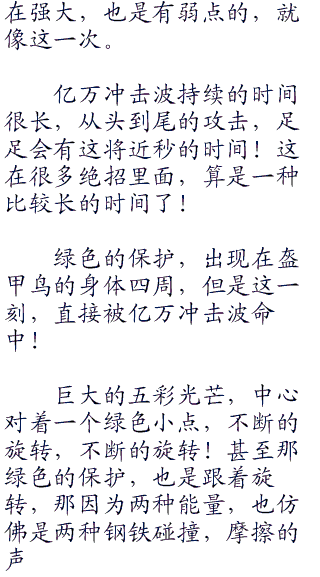 在强大，也是有弱点的，就
像这一次。
亿万冲击波持续的时间
很长，从头到尾的攻击，足
足会有这将近秒的时间！这
在很多绝招里面，算是一种
比较长的时间了！
绿色的保护，出现在盔
甲鸟的身体四周，但是这一
刻，直接被亿万冲击波命
中！
巨大的五彩光芒，中心
对着一个绿色小点，不断的
旋转，不断的旋转！甚至那
绿色的保护，也是跟着旋
转，那因为两种能量，也仿
佛是两种钢铁碰撞，摩擦的
声